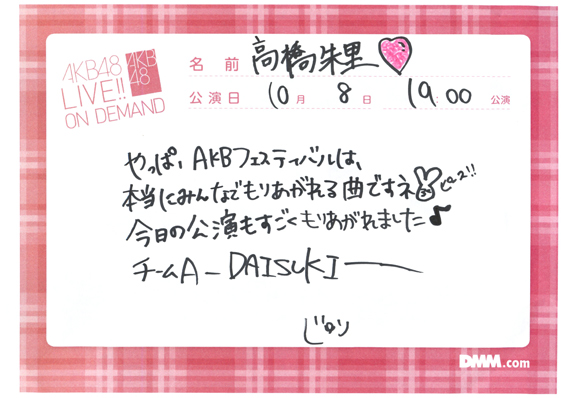 AKB48
LIVE!!
ON DEMAND
AKB
48
名前 高橋朱里
公演日 10月 8日 19:00 公演
やっぱ、AKBフェスティバルは、
本当にみんなでもりあがれる曲ですネ ピース!!
今日の公演もすごくもりあがれました♪
チームA−DAISUKI−
じゅり
DMM.com